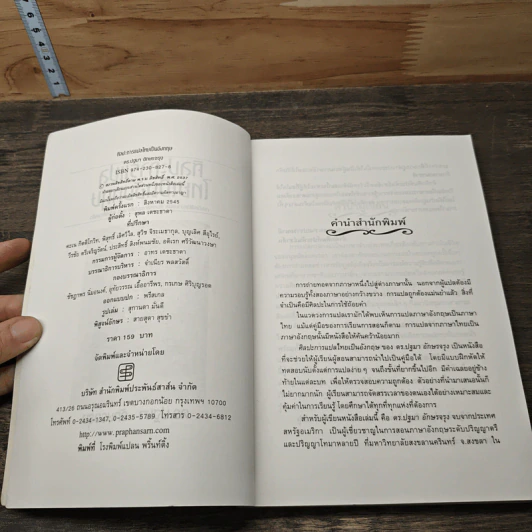 ศิลปะการแปลไทยเป็นอังกฤษ
ดร.ปฐมา อักษรจรุง
ISBN 974-230-927-8
พิมพ์ครั้งแรก : สิงหาคม 2545
ผู้ก่อตั้ง : สุพล เตชะธาดา
ที่ปรึกษา
กรรมการผู้จัดการ : อาทร เตชะธาดา
บรรณาธิการบริหาร : จำเนียร พลสวัสดิ์
กองบรรณาธิการ
ออกแบบปก : พรีสบุค
รูปเล่ม : สุกานดา มั่นอี
พิสูจน์อักษร : สายสุดา สุขขำ
ราคา 159 บาท
จัดพิมพ์และจำหน่ายโดย
บริษัท สำนักพิมพ์ประพันธ์สาส์น จำกัด
413/26 ถนนอรุณอมรินทร์ เขตบางกอกน้อย กรุงเทพฯ 10700
โทรศัพท์ 0-2434-1347, 0-2435-5789, โทรสาร 0-2434-6812
http://www.praphansarn.com
พิมพ์ที่ โรงพิมพ์แปลน พริ้นท์ติ้ง
คำนำสำนักพิมพ์
การถ่ายทอดจากภาษาหนึ่งไปสู่ต่างภาษานั้น นอกจากผู้แปลต้องมี
ความรอบรู้ทั้งสองภาษาอย่างกว้างขวาง การแปลถูกต้องแม่นยำแล้ว สิ่งที่
จำเป็นคือมีศิลปะในการใช้ถ้อยคำ
ในแวดวงการแปลเรามักได้พบเห็นการแปลภาษาอังกฤษเป็นภาษา
ไทย แม้แต่คู่มือของการเรียนการสอนก็ตาม การแปลจากภาษาไทยเป็น
ภาษาอังกฤษนั้นมีหนังสือให้ค้นคว้าน้อยมาก
ศิลปะการแปลไทยเป็นอังกฤษ ของ ดร.ปฐมา อักษรจรุง เป็นหนังสือ
ที่จะช่วยให้ผู้เรียนผู้สอนสามารถนำไปเป็นคู่มือได้ โดยมีแบบฝึกหัดให้
ทดสอบนับตั้งแต่การแปลง่าย ๆ จนถึงชั้นที่ยากขึ้นไปอีก มีคำเฉลยอยู่ข้าง
ท้ายในแต่ละบท เพื่อให้ตรวจสอบความถูกต้อง ตัวอย่างที่นำมาเสนอนั้นก็
ไม่ยากมากนัก ผู้เรียนสามารถจัดสรรเวลาของตนเองได้อย่างเหมาะสมและ
คุ้มค่าในการเรียนรู้ โดยศึกษาได้ทุกที่ทุกแห่งที่ต้องการ
สำหรับผู้เขียนหนังสือเล่มนี้ คือ ดร.ปฐมา อักษรจรุง จบจากประเทศ
สหรัฐอเมริกา เป็นผู้เชี่ยวชาญในการสอนภาษาอังกฤษระดับปริญญาตรี
และปริญญาโทมาหลายปี ที่มหาวิทยาลัยสงขลานครินทร์ จ.สงขลา ใน